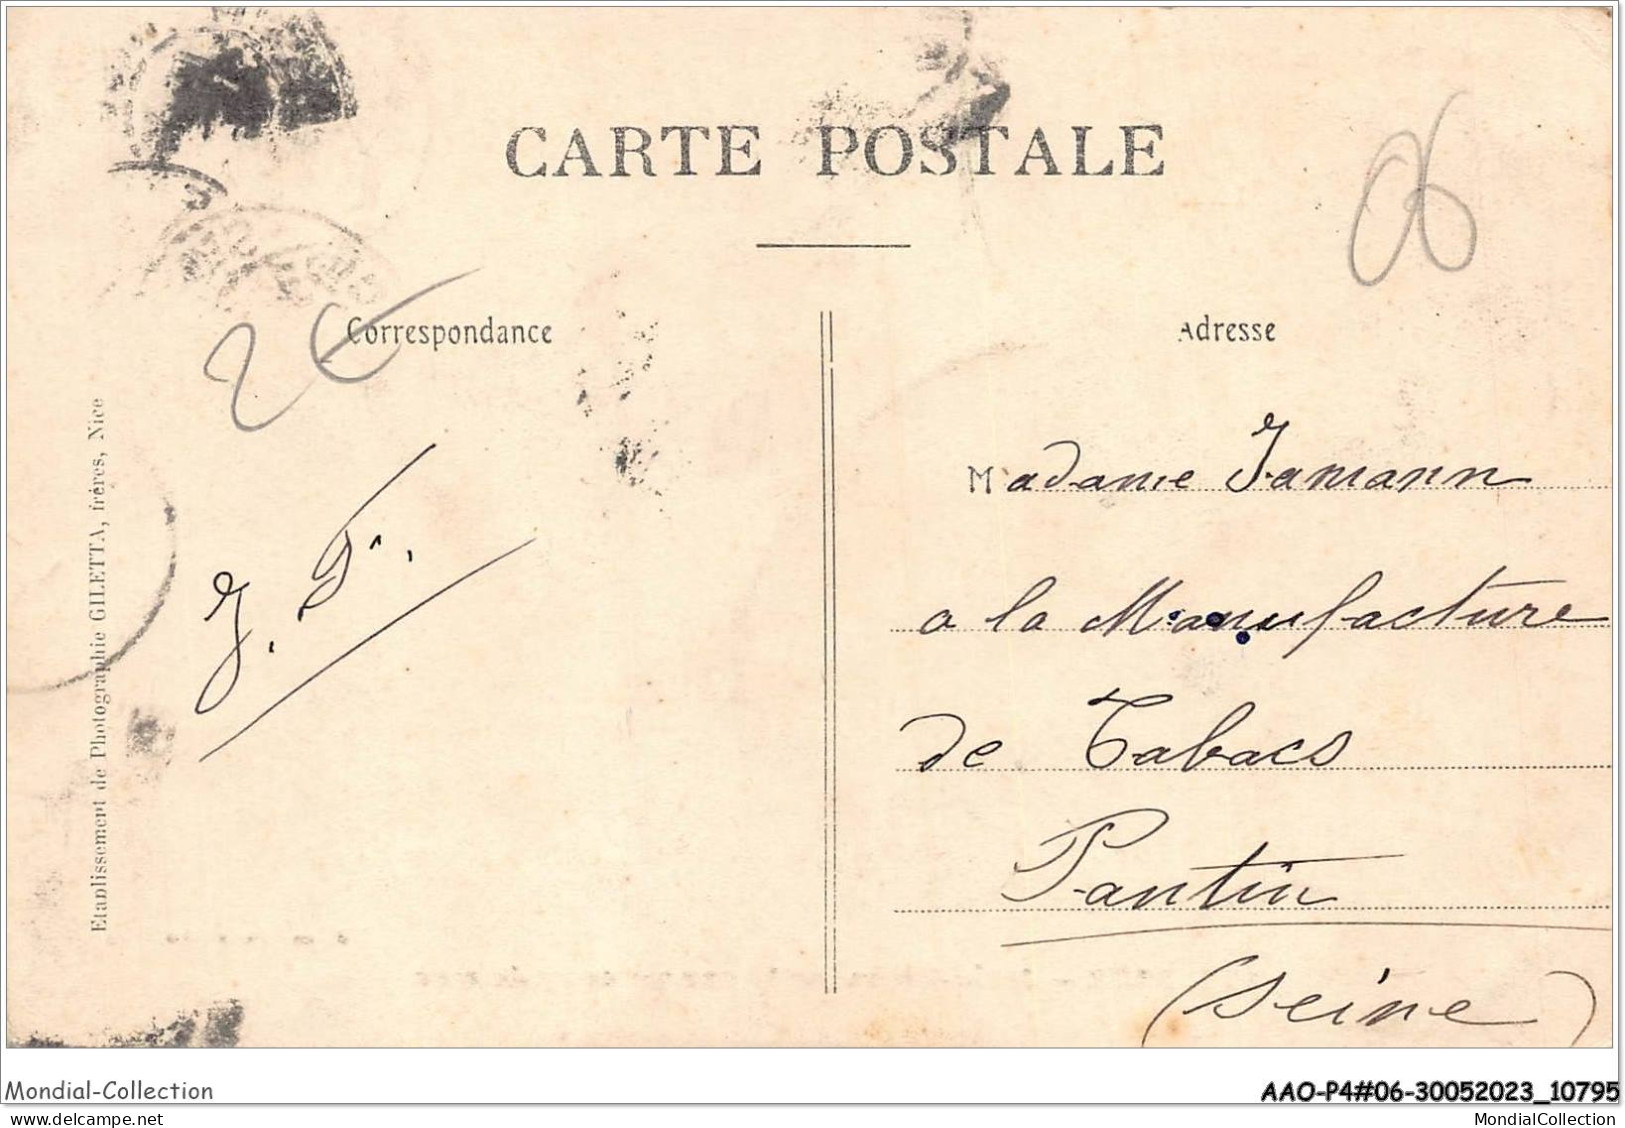 CARTE POSTALE
06
Correspondance
2€
Adresse
Etablissement de Photographie GILETTA, frères, Nice
J. F.
Madame Jamann
a la Manufacture
de Tabacs
Pantin
(Seine)
Mondial-Collection
AAO-P4#06-30052023_10795
www.delcampe.net
MondialCollection